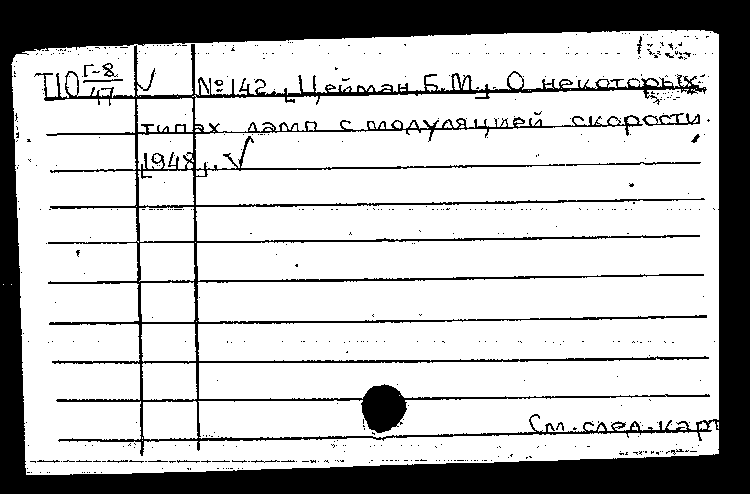 П10 Г-8/47 √ № 142. [Цейман Б.М.] О некоторых
типах ламп с модуляцией скорости.
[1948]. √
См. след. карт